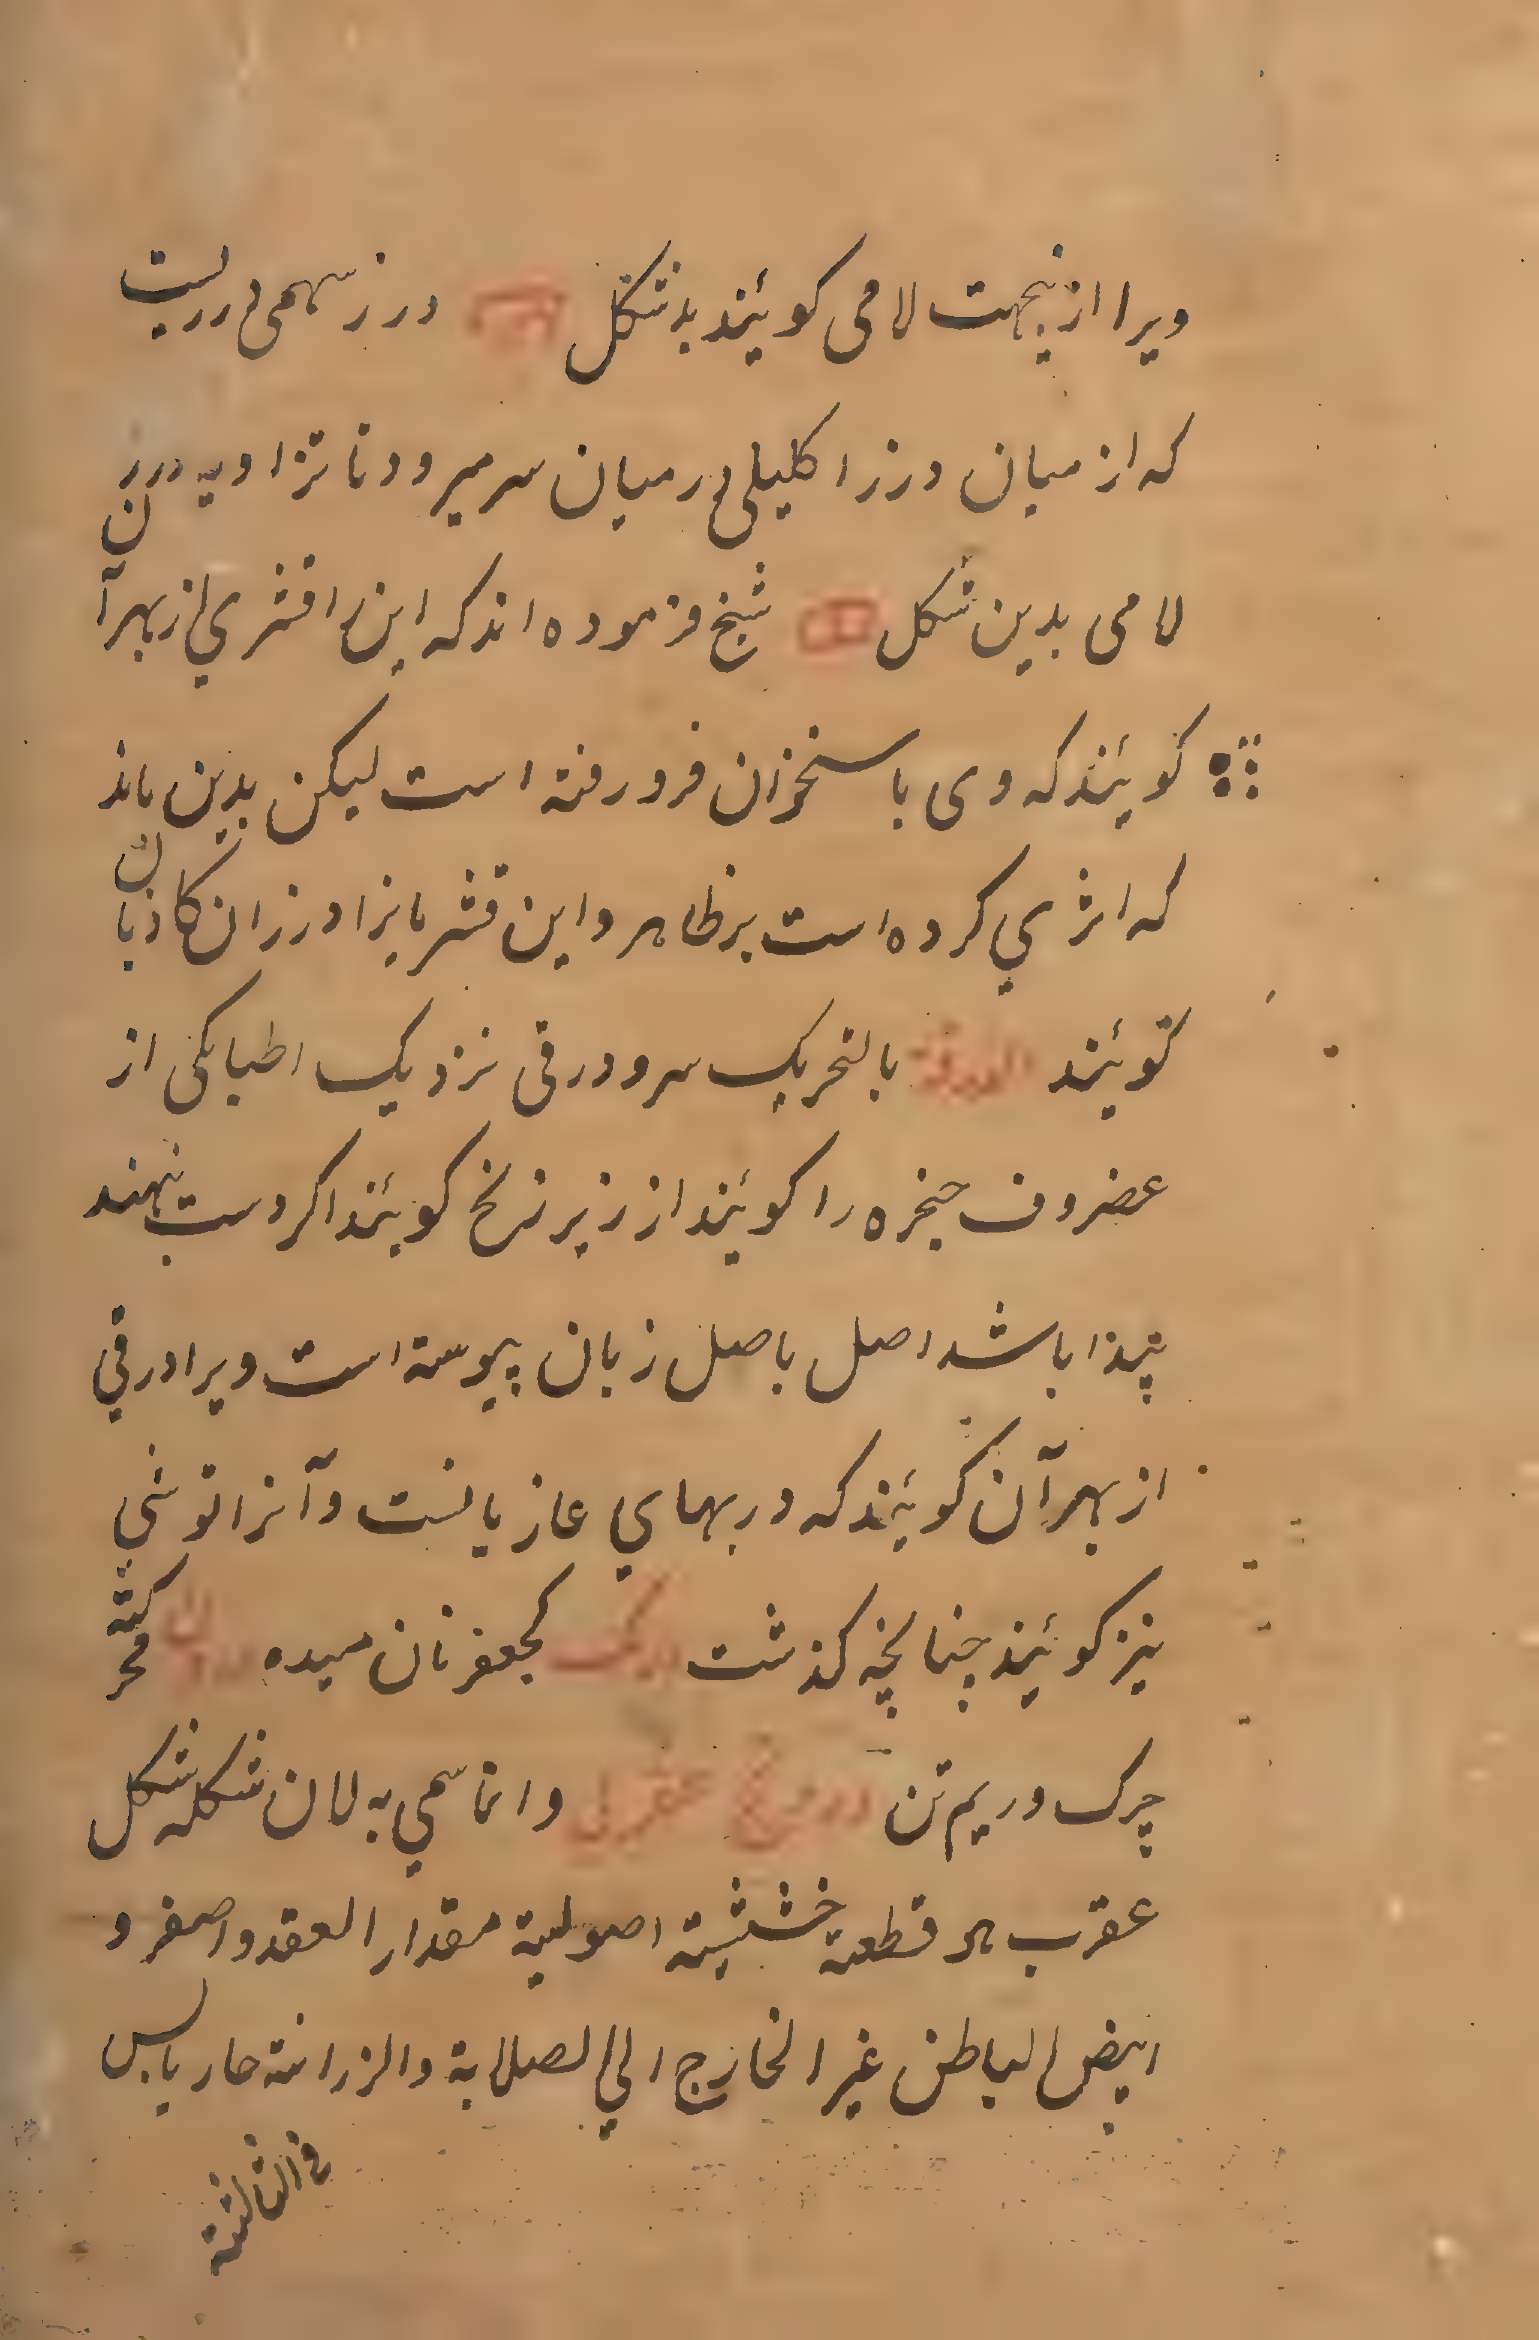 ویرا ازینجهت لامی کویند بذشکل درز سهمی درریست
که از میان درز اکلیلی درمیان سر میرود تا تزاویه درزن
لامی بدین شکل شیخ فرموده اند که این را قشري از بهر آ
کویند که وی باسخزان فرو رفته است لیکن بدین ماند
که اثري کرده است بر ظاهر و این قشر مایزا درزان کاذبان
کویند بالتحریک سرو درقی نزدیک اطبا یکی از
عضروف حنجره را کویند از زیر نزنخ کویند اکر دست نهند
پیذا باشد اصل باصل زبان پیوسته است ویرا درقي
از بهر آن کویند که در بهاي عازیانست و آنرا توشي
نیز کویند چنانچه کذشت کجعفر نان میده محرکته
چرک و ریم تن وانما سمي به لان شکله شکل
عقرب هر قطعة خشبیة اصولیة مقدار العقد و اصفر و
ابیض الباطن غیر الخارج الي الصلابة والزرانة حار یابس
في الثالثة